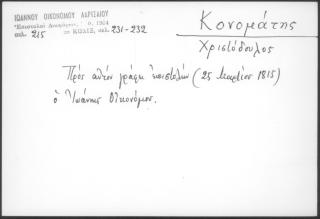 ΙΩΑΝΝΟΥ ΟΙΚΟΝΟΜΟΥ ΛΑΡΙΣΑΙΟΥ
"Επιστολαί Διαφόρων", 1964
σελ. 215 σελ. 231-232
Κονομάτης
Χριστόδουλος
Πρός αὐτόν γράφει ἐπιστολήν (25 Μαρτίου 1815)
ὁ Ἰωάννης Οἰκονόμου.